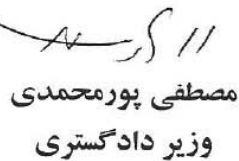 مصطفی پورمحمدی
وزیر دادگستری